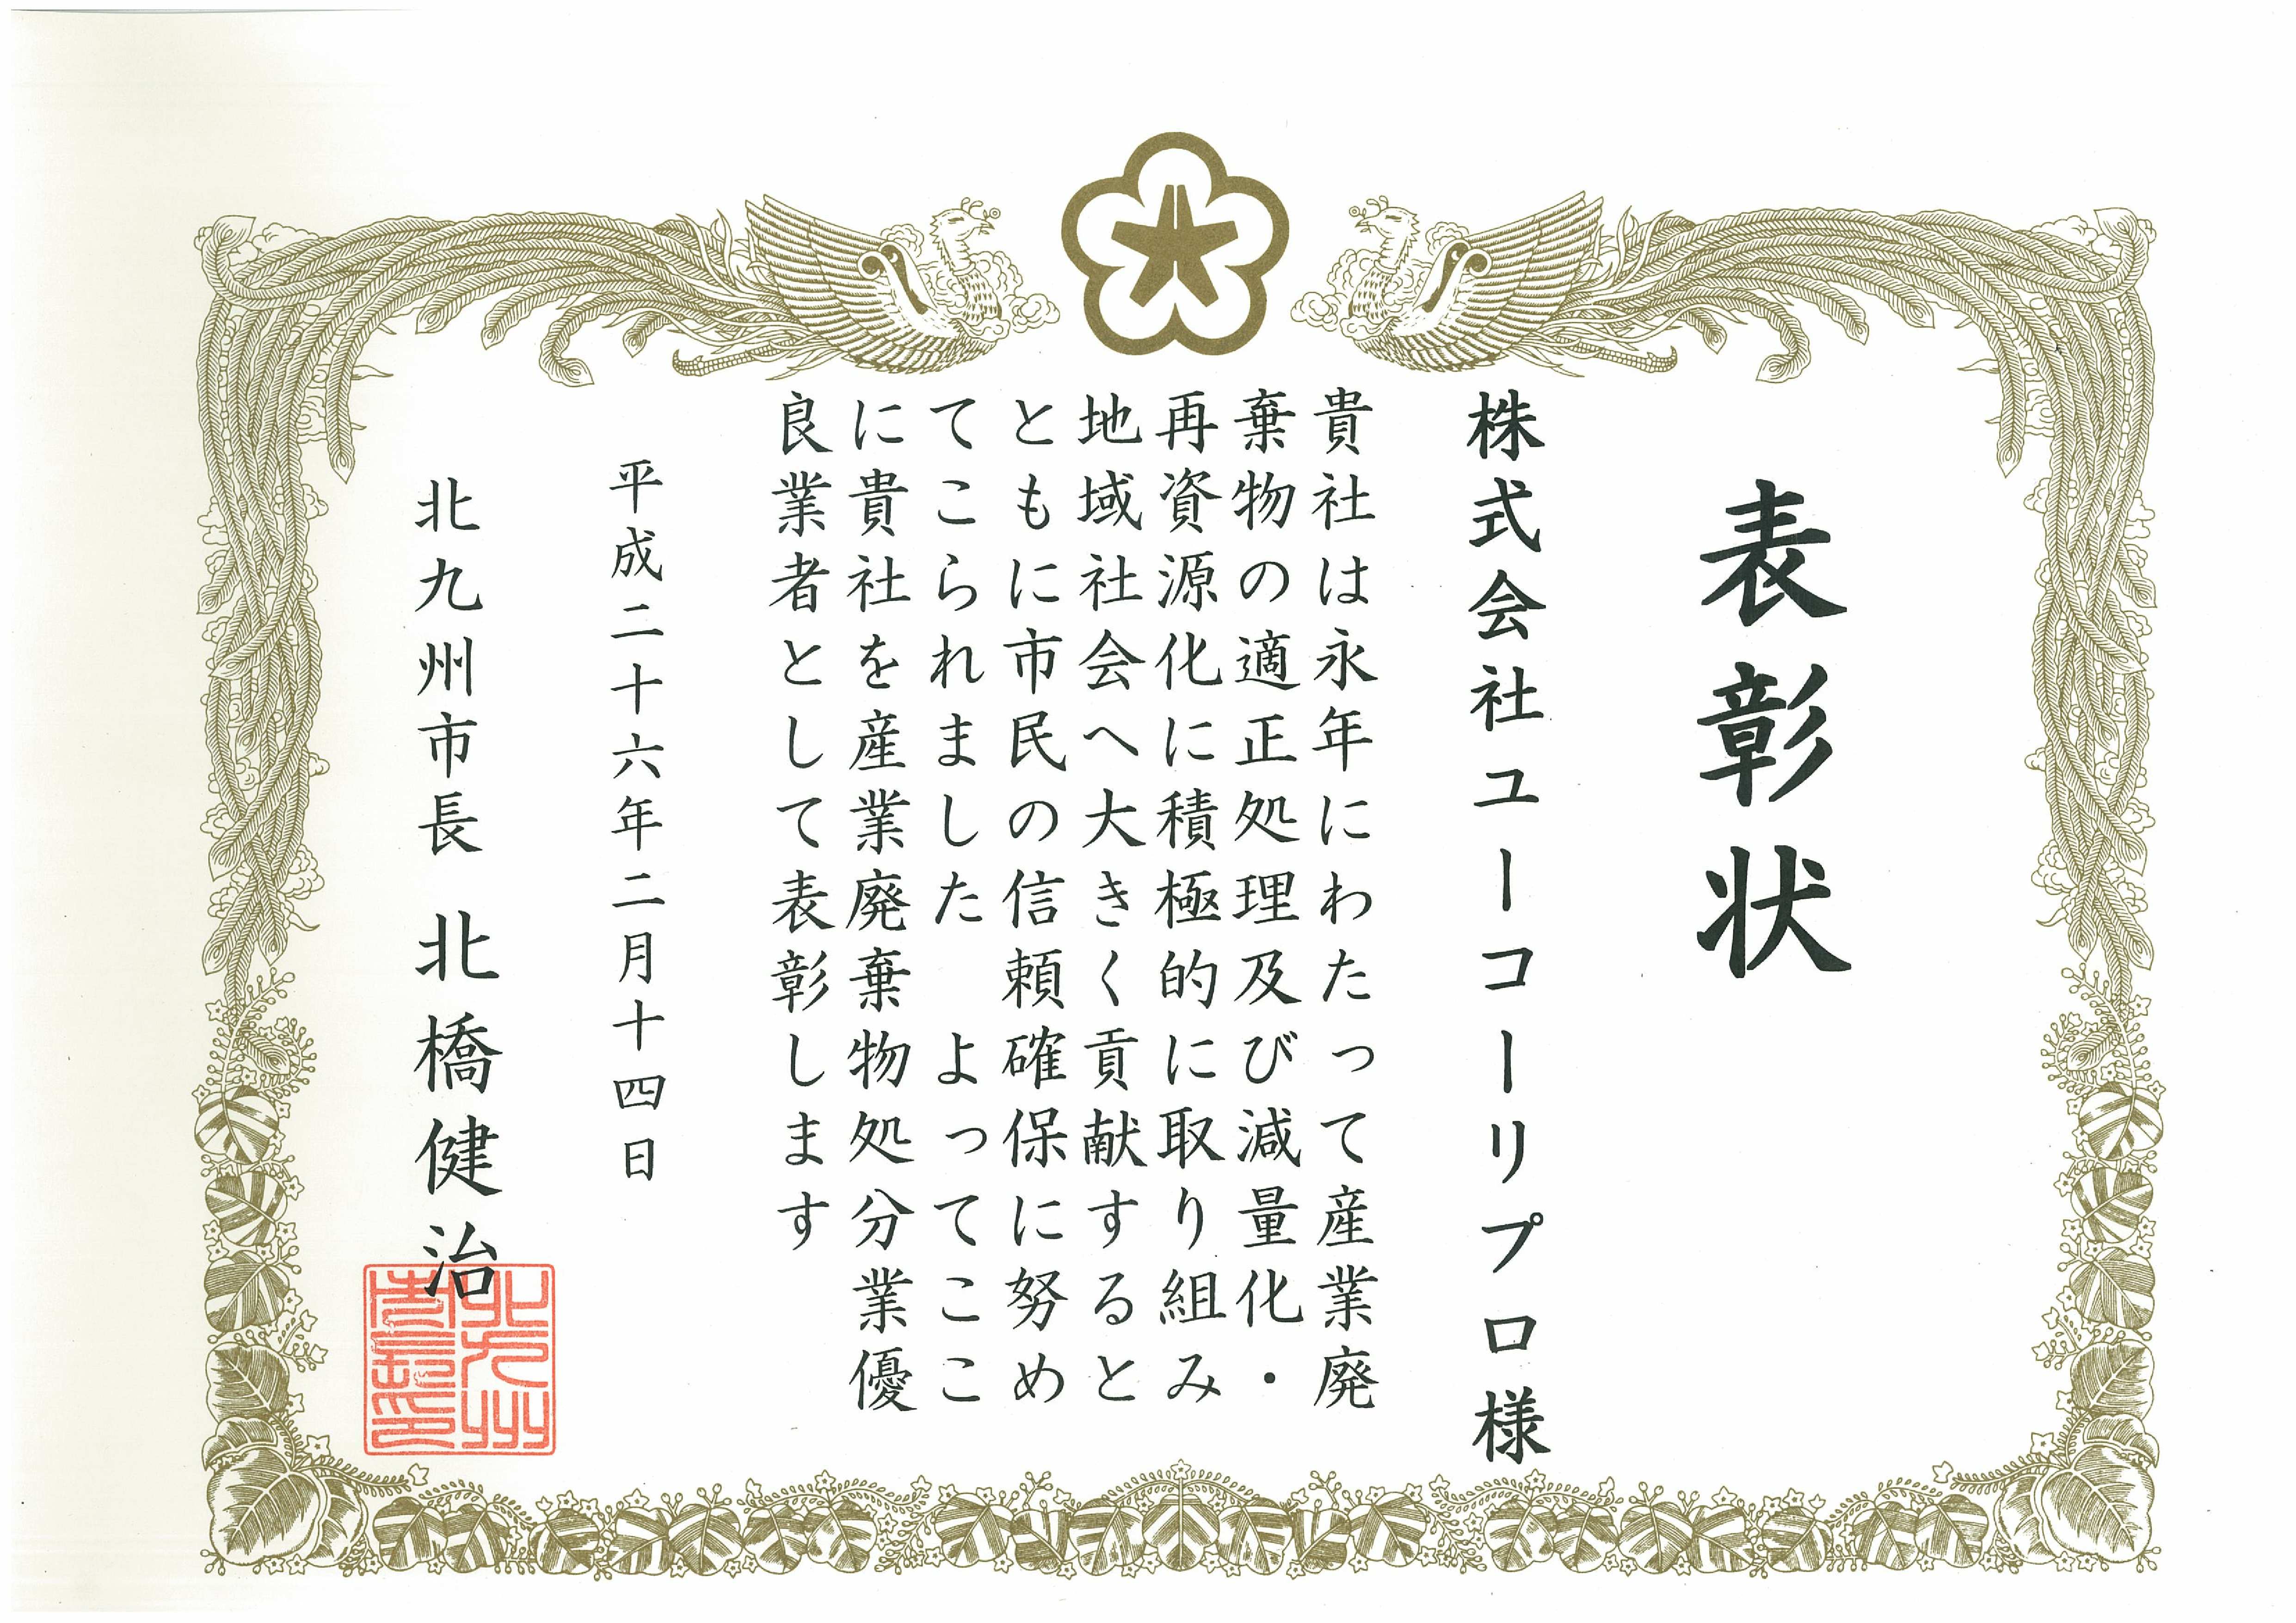 表彰状
株式会社ユーコーリプロ様
貴社は永年にわたって産業廃
棄物の適正処理及び減量化・
再資源化に積極的に取り組み
地域社会へ大きく貢献すると
ともに市民の信頼確保に努め
てこられました よってここ
に貴社を産業廃棄物処分業優
良業者として表彰します
平成二十六年二月十四日
北九州市長 北橋健治
北九州
市長印